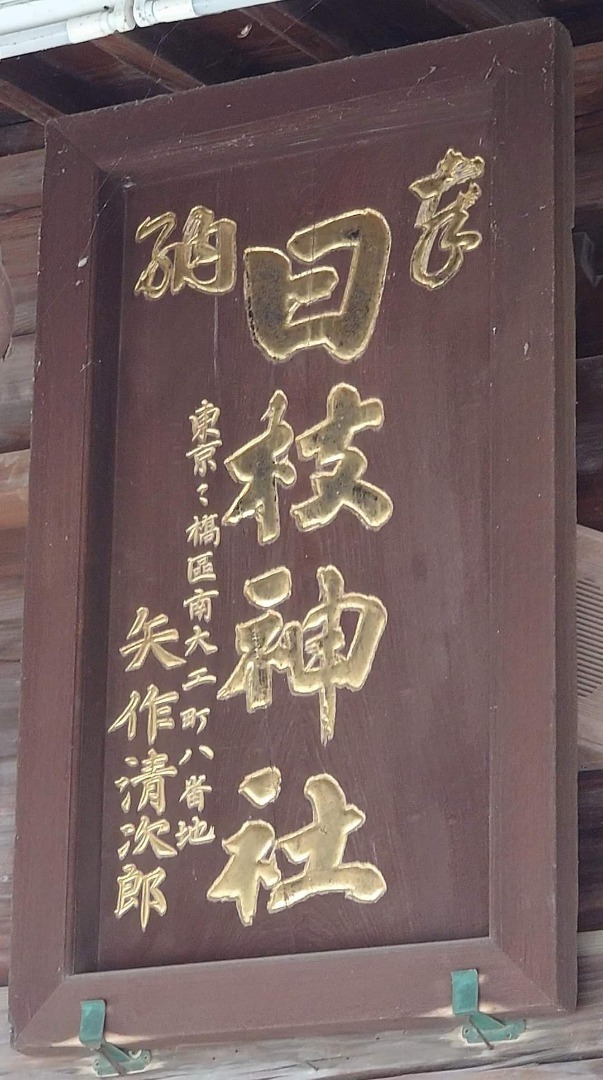 奉
納
日枝神社
東京々橋區南大工町八番地
矢作清次郎